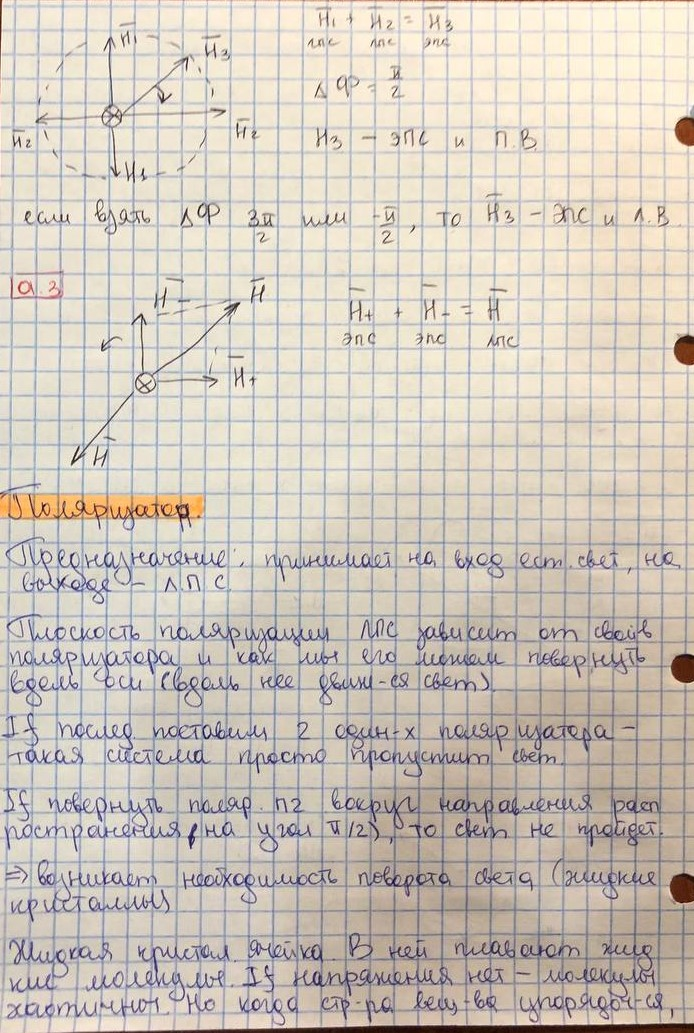 H̅₁ + H̅₂ = H̅₃
ЛПС ЛПС ЭПС
H̅₁
H̅₃
ΔФ = π/2
H̅₂
H̅₂
H₃ – ЭПС и П.В.
H₁
если взять ΔФ 3π/2 или -π/2, то H̅₃ – ЭПС и Л.В.
а.3
H̅₋
H̅
H̅₊ + H̅₋ = H̅
ЭПС ЭПС ЛПС
H̅₊
H̅
Поляризатор.
Предназначение: принимает на вход ест. свет, на
выходе – Л.П.С.
Плоскость поляризации ЛПС зависит от свойв
поляризатора и как мы его можем повернуть
вдоль оси (вдоль нее движ-ся свет).
If послед поставим 2 один-х поляризатора –
такая система просто пропустит свет.
If повернуть поляр. П2 вокруг направления расп
ространения (на угол π/2), то свет не пройдет.
⇒ возникает необходимость поворота света (жидкие
кристаллы)
Жидкая кристал. ячейка. В ней плавают жид
кие молекулы. If напряжения нет – молекулы
хаотичны. Но когда стр-ра вещ-ва упорядоч-ся,